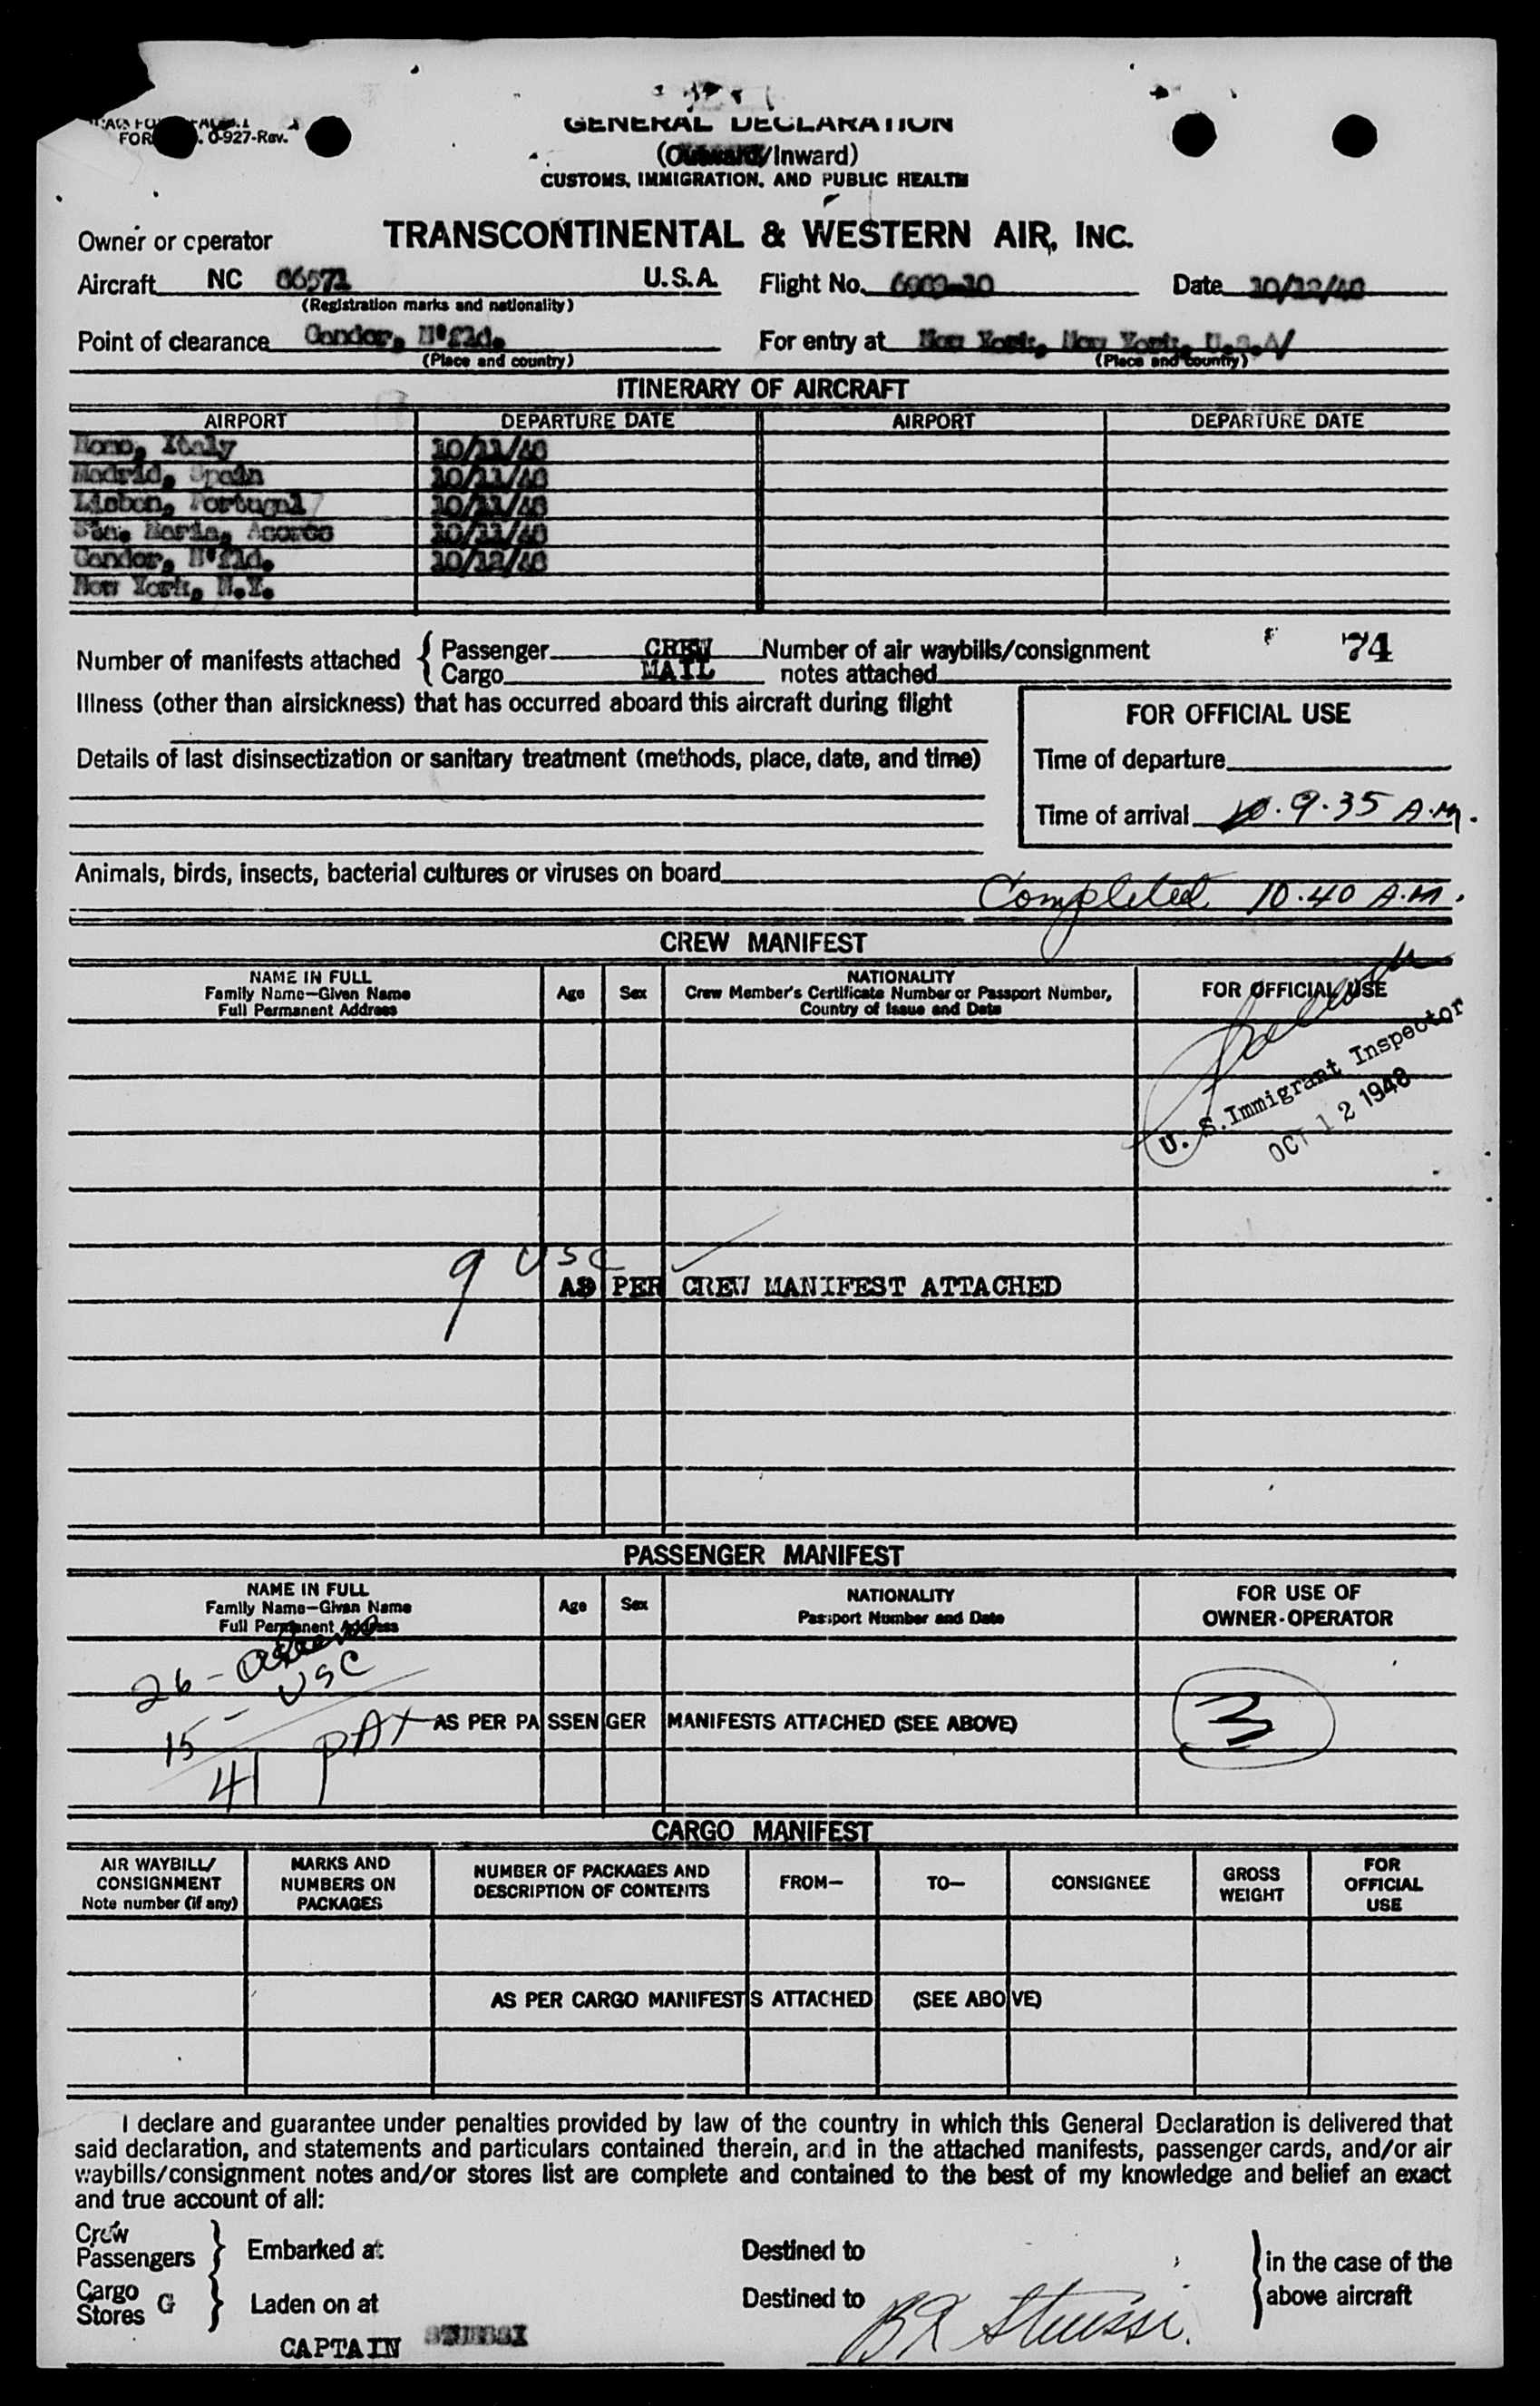 FOR . 0-927-Rev.
GENERAL DECLARATION
(Outward/Inward)
CUSTOMS, IMMIGRATION, AND PUBLIC HEALTH
Owner or operator TRANSCONTINENTAL & WESTERN AIR, INC.
Aircraft NC 86571 U.S.A. Flight No. Date 10/12/48
(Registration marks and nationality)
Point of clearance Gander, N'fld. For entry at New York, New York, U.S.A/
(Place and country) (Place and country)
ITINERARY OF AIRCRAFT
AIRPORT DEPARTURE DATE AIRPORT DEPARTURE DATE
Rome, Italy 10/11/48
Madrid, Spain 10/11/48
Lisbon, Portugal 10/11/48
Sta. Maria, Azores 10/11/48
Gander, N'fld. 10/12/48
New York, N.Y.
Number of manifests attached { Passenger CREW Number of air waybills/consignment 74
Cargo MAIL notes attached
Illness (other than airsickness) that has occurred aboard this aircraft during flight
FOR OFFICIAL USE
Details of last disinsectization or sanitary treatment (methods, place, date, and time) Time of departure
Time of arrival 9.35 A.M.
Animals, birds, insects, bacterial cultures or viruses on board
Completed 10.40 A.M.
CREW MANIFEST
NAME IN FULL
Family Name—Given Name
Full Permanent Address
Age Sex
NATIONALITY
Crew Member's Certificate Number or Passport Number,
Country of Issue and Date
FOR OFFICIAL USE
U. S. Immigrant Inspector
OCT 12 1948
9 USC
AS PER CREW MANIFEST ATTACHED
PASSENGER MANIFEST
NAME IN FULL
Family Name—Given Name
Full Permanent Address
Age Sex
NATIONALITY
Passport Number and Date
FOR USE OF
OWNER-OPERATOR
26 - Aliens
15 - USC
41 PAX
AS PER PASSENGER MANIFESTS ATTACHED (SEE ABOVE)
3
CARGO MANIFEST
AIR WAYBILL/
CONSIGNMENT
Note number (if any)
MARKS AND
NUMBERS ON
PACKAGES
NUMBER OF PACKAGES AND
DESCRIPTION OF CONTENTS
FROM— TO— CONSIGNEE
GROSS
WEIGHT
FOR
OFFICIAL
USE
AS PER CARGO MANIFESTS ATTACHED (SEE ABOVE)
I declare and guarantee under penalties provided by law of the country in which this General Declaration is delivered that
said declaration, and statements and particulars contained therein, and in the attached manifests, passenger cards, and/or air
waybills/consignment notes and/or stores list are complete and contained to the best of my knowledge and belief an exact
and true account of all:
Crew
Passengers } Embarked at Destined to } in the case of the
Cargo
Stores G } Laden on at Destined to above aircraft
CAPTAIN STUESSI
Stuessi.